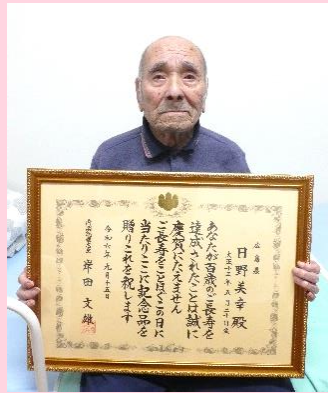 広島県
日野美幸殿
あなたが百歳のご長寿を
達成されたことは誠に
慶賀にたえません
ご長寿をことほぐこの日に
当たりここに記念品を
贈りこれを祝します
令和六年九月十五日
内閣総理大臣 岸田文雄